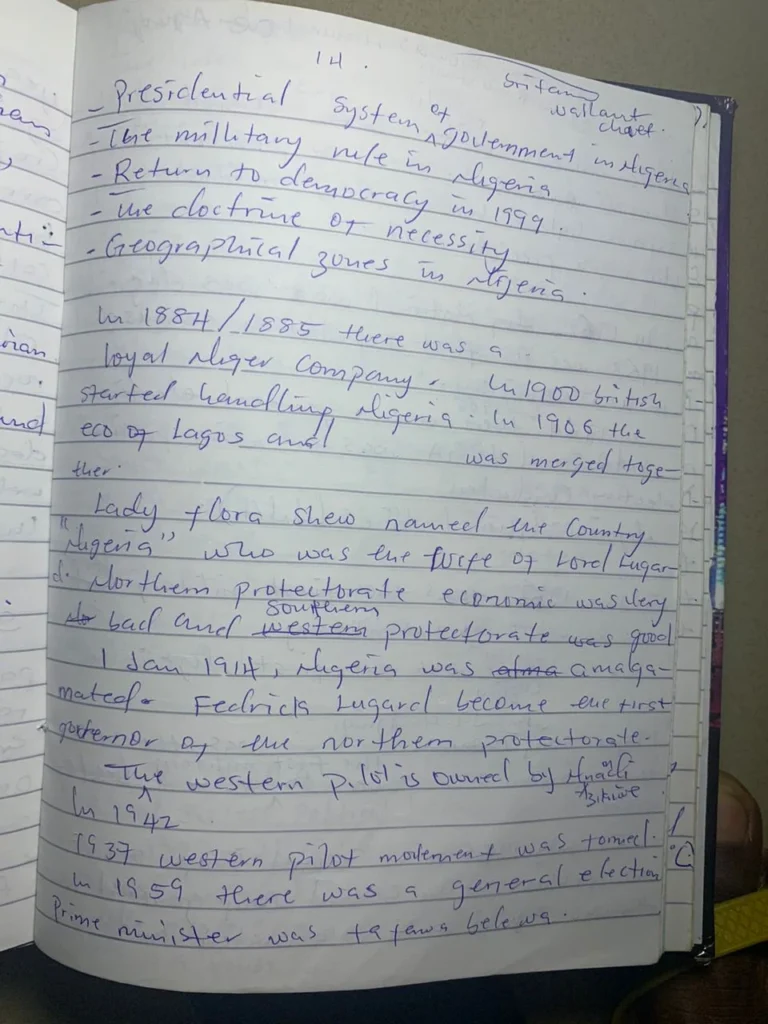 14.
britan
wallant
chaet.
- Presidential System of government in Nigeria
- The military rule in Nigeria
- Return to democracy in 1999.
- The doctrine of necessity
- Geographical zones in Nigeria.
In 1884/1885 there was a
loyal Niger Company. In 1900 british
started handling Nigeria. In 1906 the
eco of Lagos and was merged toge-
ther.
Lady flora shew named the Country
"Nigeria" who was the wife of Lord Lugar-
d. Northern protectorate economic was very
bad and western southern protectorate was good
1 Jan 1914, Nigeria was amalga-
mated. Fedrick Lugard become the first
governor of the northern protectorate.
The western pilot is owned by Nnadi
Azikiwe
In 1942
1937 western pilot movement was formed.
In 1959 there was a general election
Prime minister was tafawa belewa.